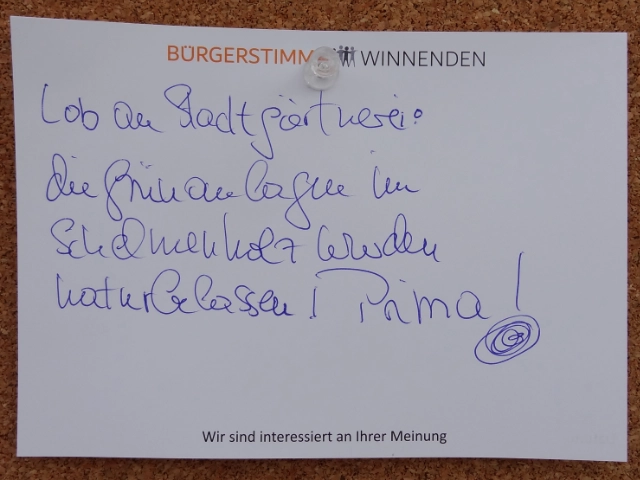 BÜRGERSTIMM WINNENDEN
Lob an Stadtgärtnerei:
die Grünanlagen im
Schelmenholz wurden
naturbelassen! Prima!
Wir sind interessiert an Ihrer Meinung